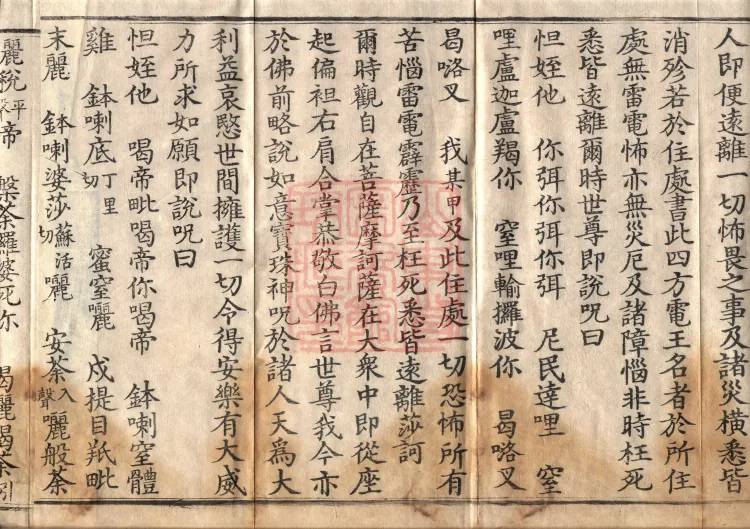 人即便遠離一切怖畏之事及諸災橫悉皆
消殄若於住處書此四方電王名者於所住
處無雷電怖亦無災厄及諸障惱非時枉死
悉皆遠離爾時世尊即說呪曰
怛姪他　你弭你弭你弭　尼民達哩　窒
哩盧迦盧羯你　窒哩輸攞波你　曷咯叉
曷咯叉　我某甲及此住處一切恐怖所有
苦惱雷電霹靂乃至枉死悉皆遠離莎訶
爾時觀自在菩薩摩訶薩在大衆中即從座
起偏袒右肩合掌恭敬白佛言世尊我今亦
於佛前略說如意寶珠神呪於諸人天爲大
利益哀愍世間擁護一切令得安樂有大威
力所求如願即說呪曰
怛姪他　喝帝毗喝帝你喝帝　鉢喇窒體
雞　鉢喇底丁里切　蜜窒麗　戍提目羝毗
末麗　鉢喇婆莎蘇活切麗　安荼入聲麗般荼
麗稅平聲帝　槃荼羅婆死你　曷麗曷荼引